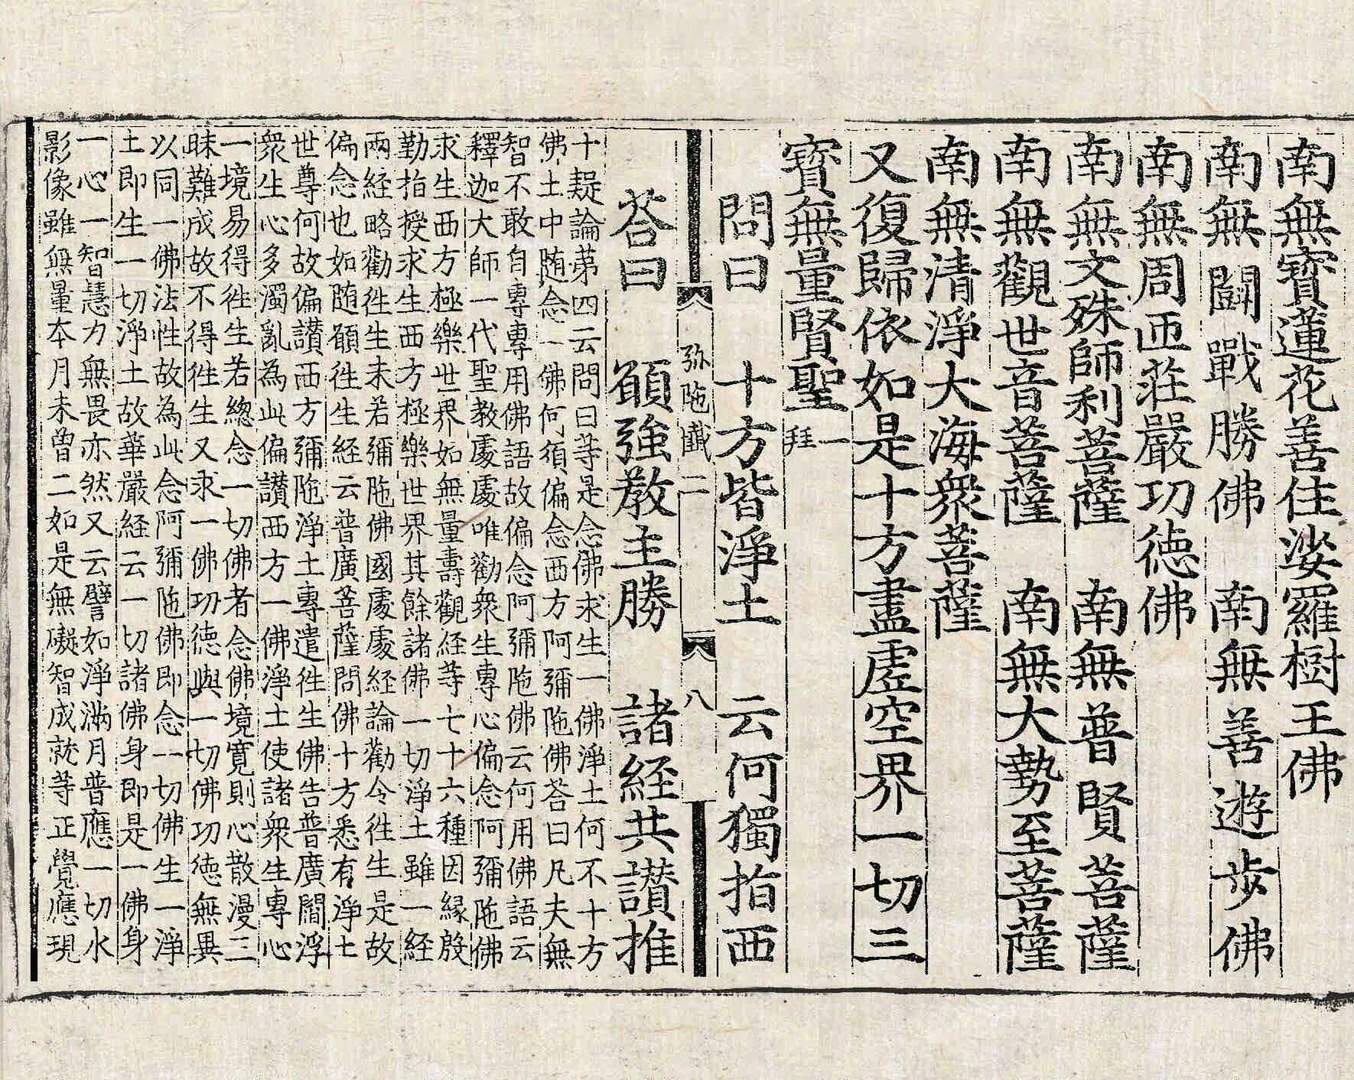 南無寶蓮花善住娑羅樹王佛
南無鬪戰勝佛　南無善遊步佛
南無周匝莊嚴功德佛
南無文殊師利菩薩　南無普賢菩薩
南無觀世音菩薩　南無大勢至菩薩
南無清淨大海衆菩薩
又復歸依如是十方盡虛空界一切三
寶無量賢聖一拜
問曰　十方皆淨土　云何獨指西
弥陁懴二　八
荅曰　願強教主勝　諸経共讃推
十疑論苐四云問曰等是念佛求生一佛淨土何不十方
佛土中随念一佛何須偏念西方阿彌陁佛荅曰凡夫無
智不敢自專專用佛語故偏念阿彌陁佛云何用佛語云
釋迦大師一代聖教處處唯勸衆生專心偏念阿彌陁佛
求生西方極樂世界如無量壽觀経等七十六種因緣慇
勤指授求生西方極樂世界其餘諸佛一切淨土雖一経
兩経略勸徃生未若彌陁佛國處處経論勸令徃生是故
偏念也如随願徃生経云普廣菩薩問佛十方悉有淨土
世尊何故偏讃西方彌陁淨土專遣徃生佛告普廣閻浮
衆生心多濁亂為此偏讃西方一佛淨土使諸衆生專心
一境易得徃生若緫念一切佛者念佛境寛則心散漫三
昧難成故不得徃生又求一佛功德與一切佛功德無異
以同一佛法性故為此念阿彌陁佛即念一切佛生一淨
土即生一切淨土故華嚴経云一切諸佛身即是一佛身
一心一智慧力無畏亦然又云譬如淨滿月普應一切水
影像雖無量本月未曾二如是無礙智成就等正覺應現